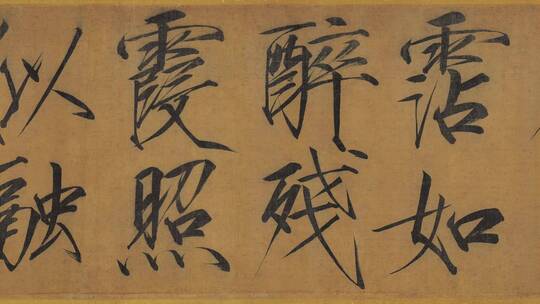 霑如
醉残
霞照
似融